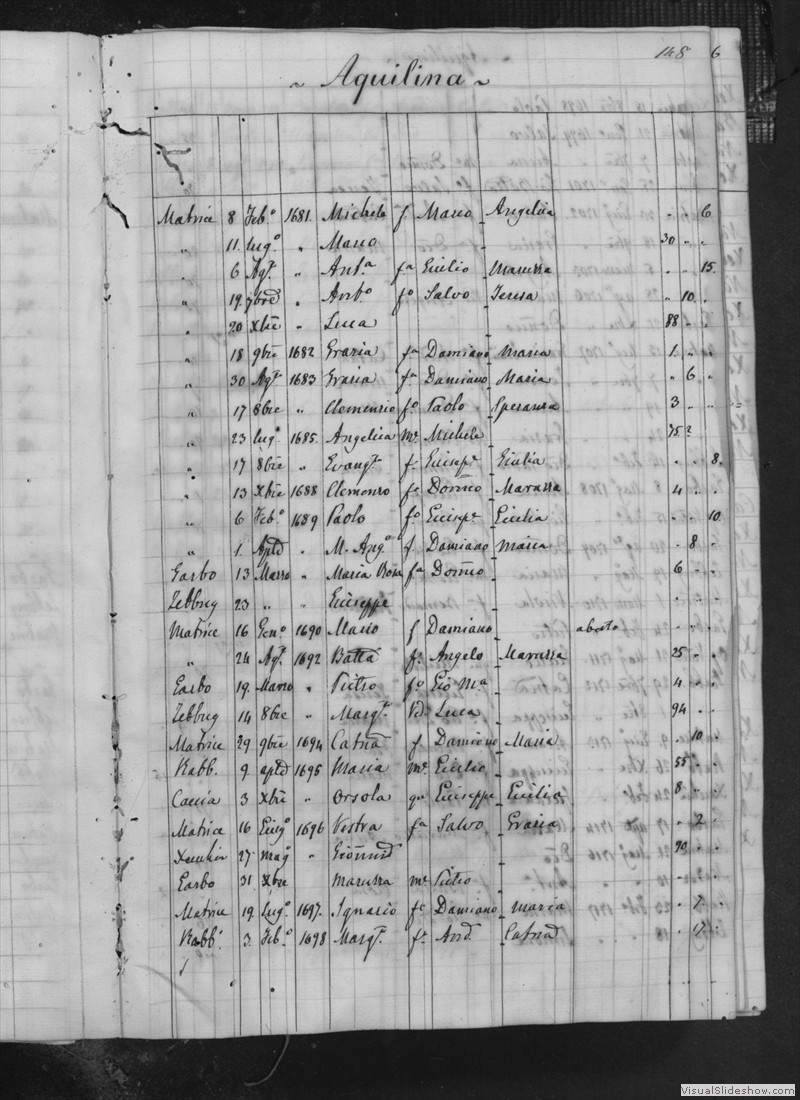 148 6
~ Aquilina ~
Matrice 8 Feb.º 1681. Michele f Mario Angelica " " 6
" 11 lug.º " Mario 30 " "
" 6 Agt. " Ant.a fa Giulio Marussa " " 15.
" 19 7bre " Ant.º fo Salvo Teresa " 10 "
" 20 xbre " Luca 88 " "
" 18 9bre 1682 Grazia fa Damiano Maria 1 " "
" 30 Agt. 1683 Grasia fa Damiano Maria " 6 "
" 17 8bre " Clemensio fo Paolo Speransa 3 " "
" 23 lug.º 1685. Angelica Me Michele 75?
" 17 8bre " Evangt. fa Giusepe Giulia " " 8.
" 13 xbre 1688 Clemenso fo Domco Marussa 4 " "
" 6 Feb.º 1689 Paolo fo Giusepe Giulia " " 10
" 1. Aple " M. Ang.a f Damiano Maria " 8 "
Garbo 13 Marso " Maria Rosa fa Domco 6 " "
Zebbug 23 " " Giuseppe " " "
Matrice 16 Gen.º 1690 Mario f Damiano aborto " " "
" 24 Agt. 1692 Batta fo Angelo Marussa 25 " "
Garbo 19. Marso " Pietro fo Gio Ma 4 " "
Zebbug 14 8bre " Margt. Vd. Luca 94 " "
Matrice 29 9bre 1694 Catna f Damiano Maria " 10 "
Rabb. 9 aple 1695 Maria me Giulio 55 " "
Caccia 3 xbre " Orsola qm Giuseppe Giulia 8 " "
Matrice 16 Giug.º 1696 Vestra fa Salvo Grasia " 2 "
27 mag. " 90 " "
Garbo 31 xbre Marussa me Pietro " " "
Matrice 19 lug.º 1697. Ignasio fo Damiano Maria " 7. "
Rabb. 3. Feb.º 1698 Margt. fa And. Catna " 17. "
VisualSlideshow.com